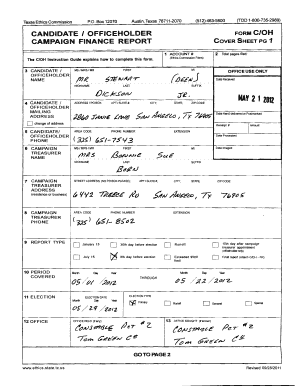 Texas Ethics Commission P.O. Box 12070 Austin, Texas 78711-2070 (512) 463-5800 (TDD 1-800-735-2989)
CANDIDATE / OFFICEHOLDER CAMPAIGN FINANCE REPORT
FORM C/OH
COVER SHEET PG 1
The C/OH Instruction Guide explains how to complete this form.
1 ACCOUNT #
(Ethics Commission Filers)
2 Total pages filed:
3 CANDIDATE / OFFICEHOLDER NAME
MS / MRS / MR FIRST MI
MR STEWART
NICKNAME LAST SUFFIX
DICKSON JR.
OFFICE USE ONLY
Date Received
MAY 21 2012
4 CANDIDATE / OFFICEHOLDER MAILING ADDRESS
change of address
ADDRESS / PO BOX; APT / SUITE #; CITY; STATE; ZIP CODE
LANE SAN ANGELO, TX 76905
Date Hand-delivered or Postmarked
5 CANDIDATE / OFFICEHOLDER PHONE
AREA CODE PHONE NUMBER EXTENSION
(325) 651-7543
Receipt # Amount
Date Processed
Date Imaged
6 CAMPAIGN TREASURER NAME
MS / MRS / MR FIRST MI
MRS BONNIE SUE
NICKNAME LAST SUFFIX
BORN
7 CAMPAIGN TREASURER ADDRESS
(residence or business)
STREET ADDRESS (NO PO BOX PLEASE); APT / SUITE #; CITY; STATE; ZIP CODE
6442 RD SAN ANGELO, TX 76905
8 CAMPAIGN TREASURER PHONE
AREA CODE PHONE NUMBER EXTENSION
(325) 651-8502
9 REPORT TYPE
January 15 30th day before election Runoff 15th day after campaign treasurer appointment (officeholder only)
July 15 X 8th day before election Exceeded $500 limit Final report (Attach C/OH - FR)
10 PERIOD COVERED
Month Day Year THROUGH Month Day Year
05 / 01 / 2012 05 / 22 / 2012
11 ELECTION
ELECTION DATE
Month Day Year
05 / 29 / 2012
ELECTION TYPE
X Primary Runoff General Special
12 OFFICE
OFFICE HELD (if any)
CONSTABLE PCT #2
TOM GREEN CO
13 OFFICE SOUGHT (if known)
CONSTABLE PCT #2
TOM GREEN CO
GO TO PAGE 2
www.ethics.state.tx.us Revised 09/28/2011